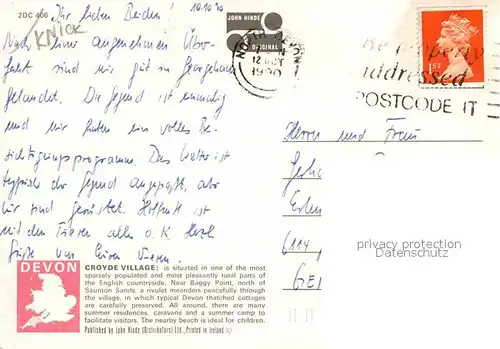 2DC 406
KNICK
10.10.90
Ihr lieben Beiden!
Nach einer angenehmen Über-
fahrt sind wir gut in Georgeham
gelandet. Die Gegend ist einmalig
und wir haben ein volles Be-
sichtigungsprogramm. Das Wetter ist
typisch der Gegend angepaßt, aber
wir sind gerüstet. Hoffentl. ist
mit den Tieren alles o.K. Herzl.
Grüße von Euren Vieren.
JOHN HINDE
ORIGINAL
NORTH DEVON
12 OCT
1990
Be Properly
addressed
POSTCODE IT
1ST
Herrn und Frau
6114,
GE
privacy protection
Datenschutz
DEVON
CROYDE VILLAGE: is situated in one of the most
sparsely populated and most pleasantly rural parts
of the English countryside. Near Baggy Point, north of
Saunton Sands, a rivulet meanders peacefully through
the village, in which typical Devon thatched cottages
are carefully preserved. All around, there are many
summer residences, caravans and a summer camp to
facilitate visitors. The nearby beach is ideal for children.
Published by John Hinde (Distributors) Ltd., Printed in Ireland